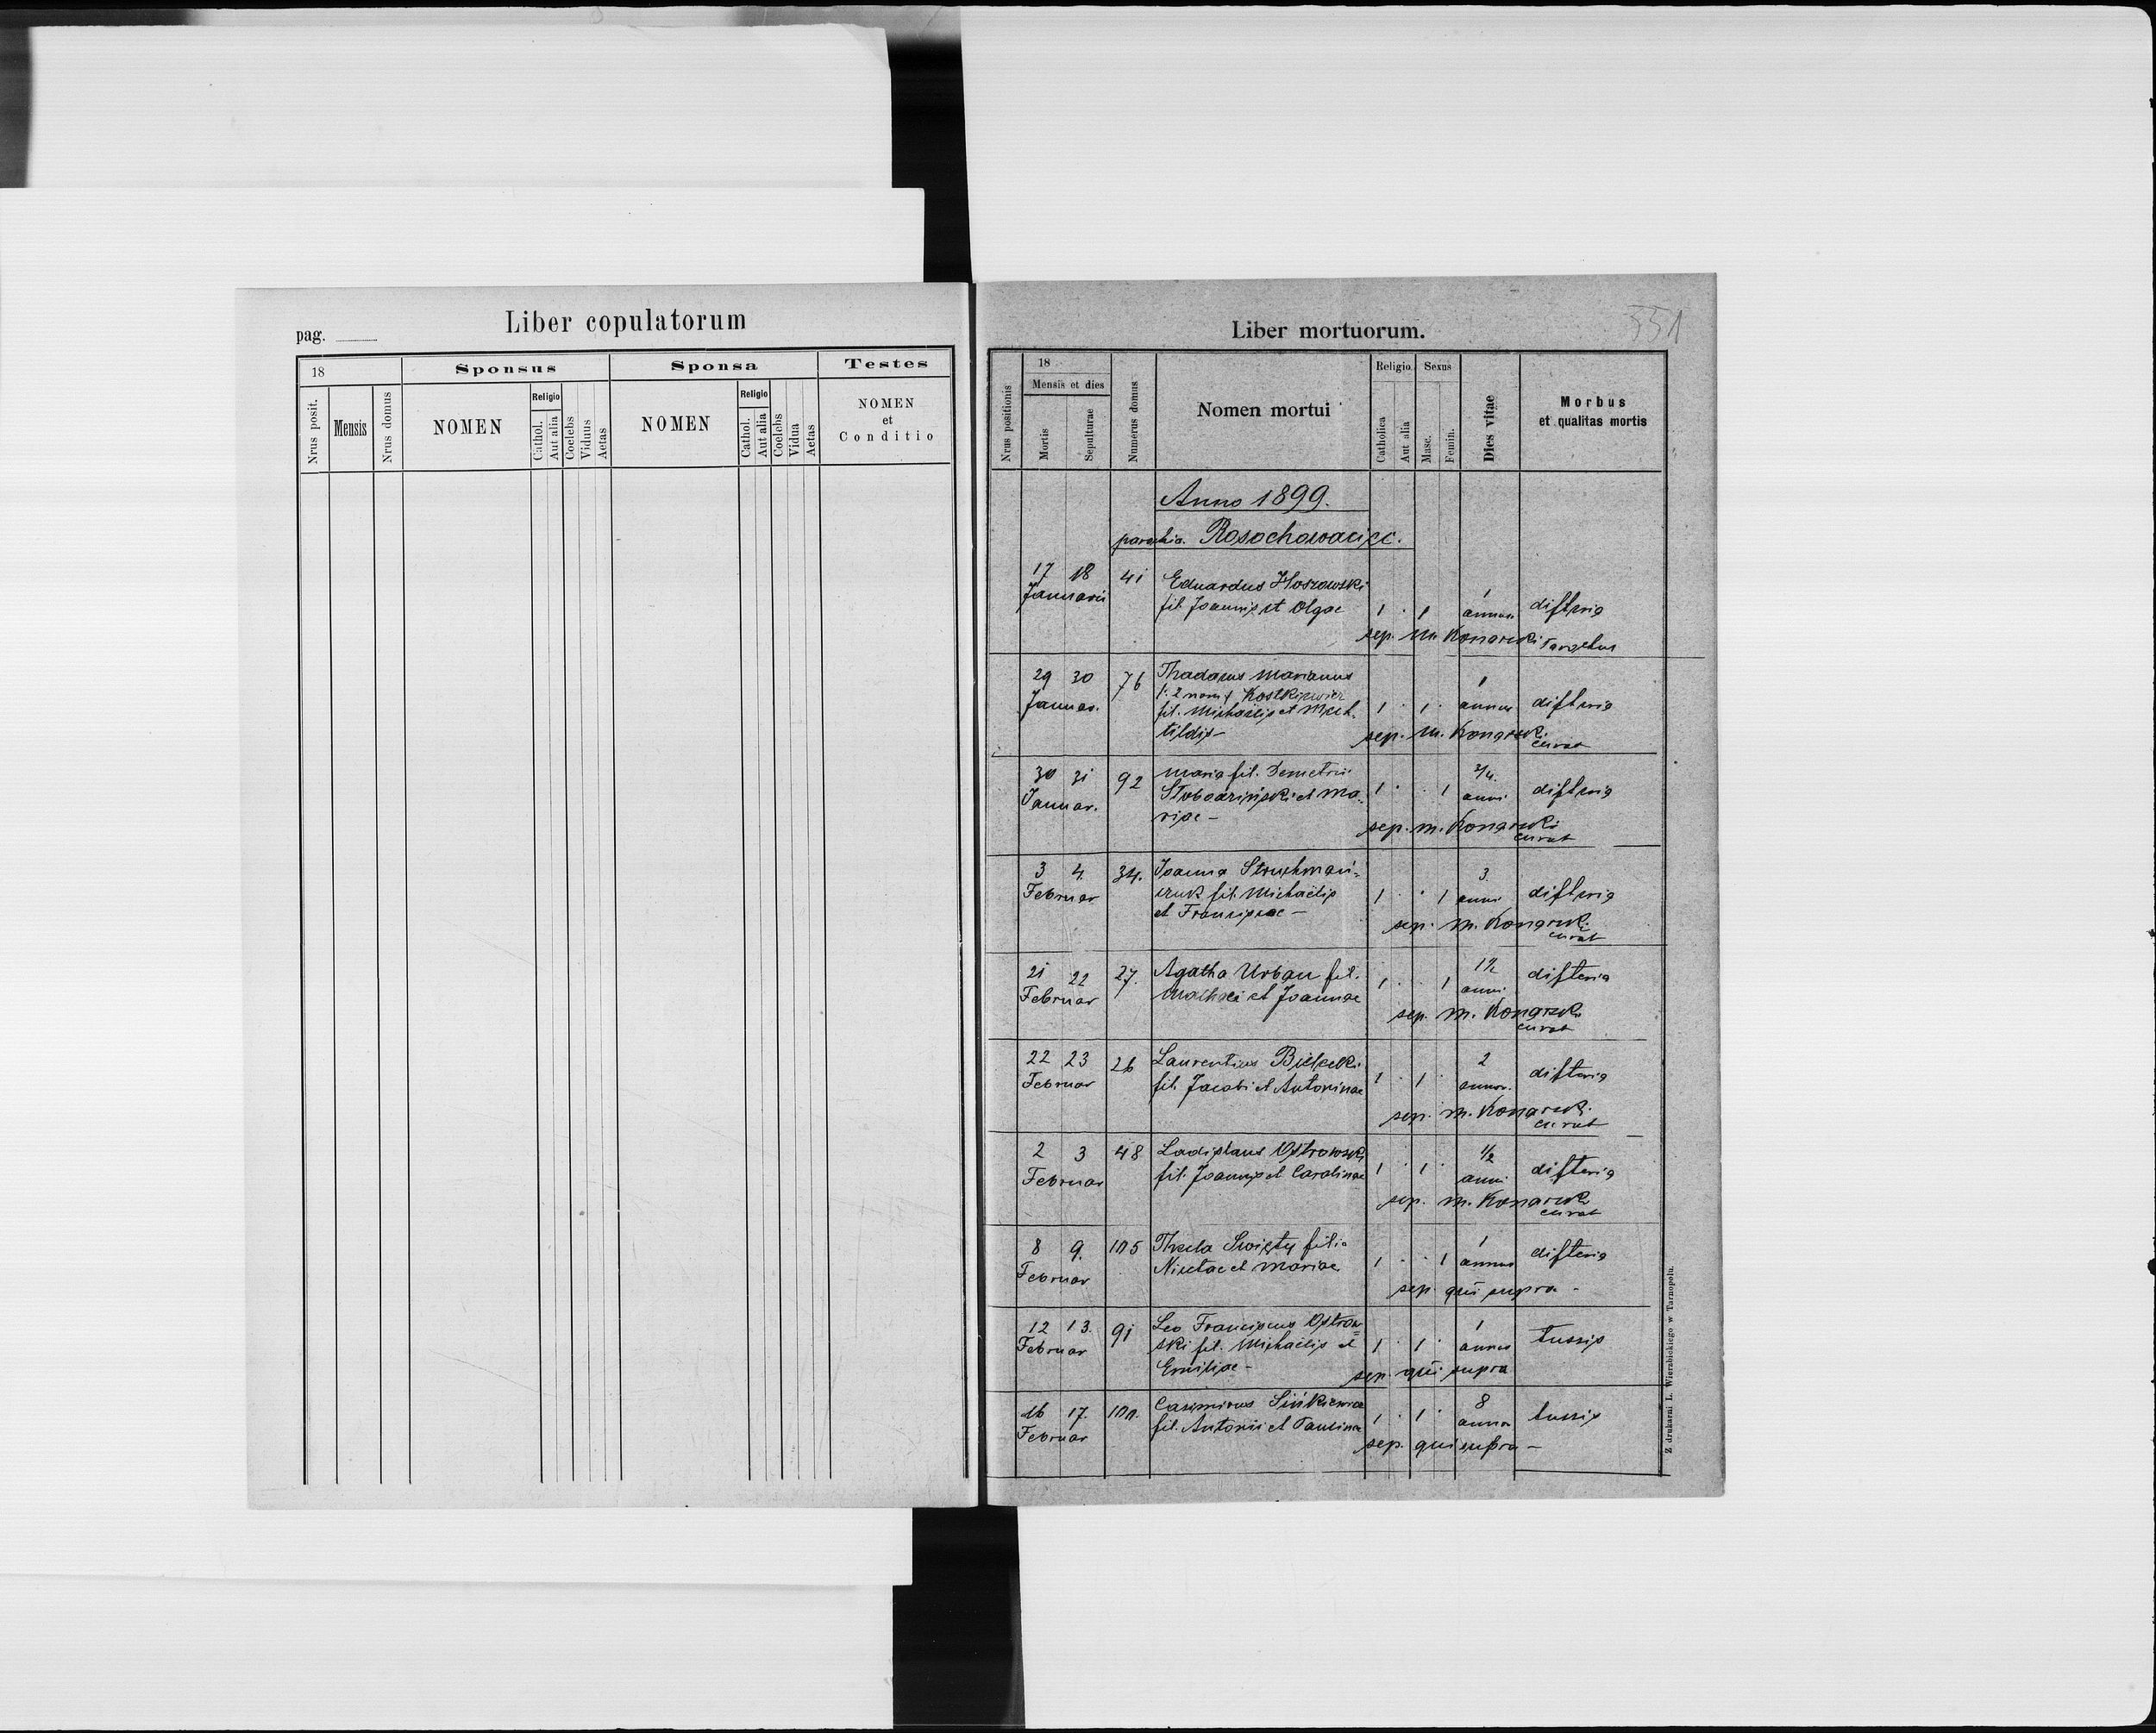 pag.
Liber copulatorum
18
Sponsus
Sponsa
Testes
Nrus posit.
Mensis
Nrus domus
NOMEN
Religio
Cathol.
Aut alia
Coelebs
Viduus
Aetas
NOMEN
Religio
Cathol.
Aut alia
Coelebs
Vidua
Aetas
NOMEN
et
Conditio
551
Liber mortuorum.
Nrus positionis
18
Mensis et dies
Mortis
Sepulturae
Numerus domus
Nomen mortui
Religio
Catholica
Aut alia
Sexus
Masc.
Femin.
Dies vitae
Morbus
et qualitas mortis
Anno 1899.
parochia Rosochowaciec.
17 18 41 Eduardus Hoszowski 1
Januarii fil. Joannis et Olgae 1 1 annus difteria
sep. M. Konarski
29 30 76 Thadaeus Marianus 1
Januar. /: 2 nom / Kostkiewicz
fil. Michaelis et Mech- 1 1 annus difteria
tildis - sep. M. Konarski
curat
30 31 92 Maria fil. Demetrii 2/4
Januar. Słobodziński et Ma- 1 1 anni difteria
riae - sep. M. Konarski
curat
3 4 34. Joanna Struchmań- 3
Februar czuk fil. Michaelis 1 1 anni difteria
et Franciscae - sep. M. Konarski
curat
21 22 27. Agatha Urban fil. 1 1/2 difteria
Februar Mathaei et Joannae 1 1 anni
sep. M. Konarski
curat
22 23 26 Laurentius Bielecki 2
Februar fil. Jacobi et Antoninae 1 1 annor. difteria
sep. M. Konarski
curat
2 3 48 Ladislaus Ostrowski 1/2
Februar fil. Joannis et Carolinae 1 1 anni difteria
sep. M. Konarski
curat
8 9. 105 Thecla Święty filia 1
Februar Nicetae et Mariae 1 1 annus difteria
sep. qui supra -
12 13. 91 Leo Franciscus Ostrow- 1
Februar ski fil. Michaelis et 1 1 annus tussis
Emiliae - sep. qui supra
16 17. Casimirus Sińkiewicz 8
Februar fil. Antonii et Paulinae 1 1 annor tussis
sep. qui supra -
Z drukarni L. Wierzbickiego w Tarnopolu.